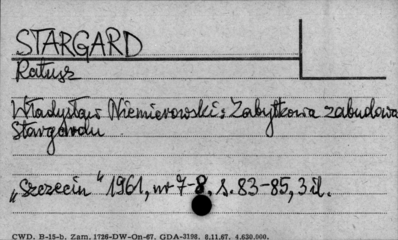 STARGARD
Ratusz
Władysław Niemierowski: Zabytkowa zabudowa
Stargardu
„Szczecin" 1961, nr 7-8, s. 83-85, 3 il.
CWD. B-15-b. Zam. 1726-DW-On-67. GDA-3198. 8.11.67. 4.630.000.